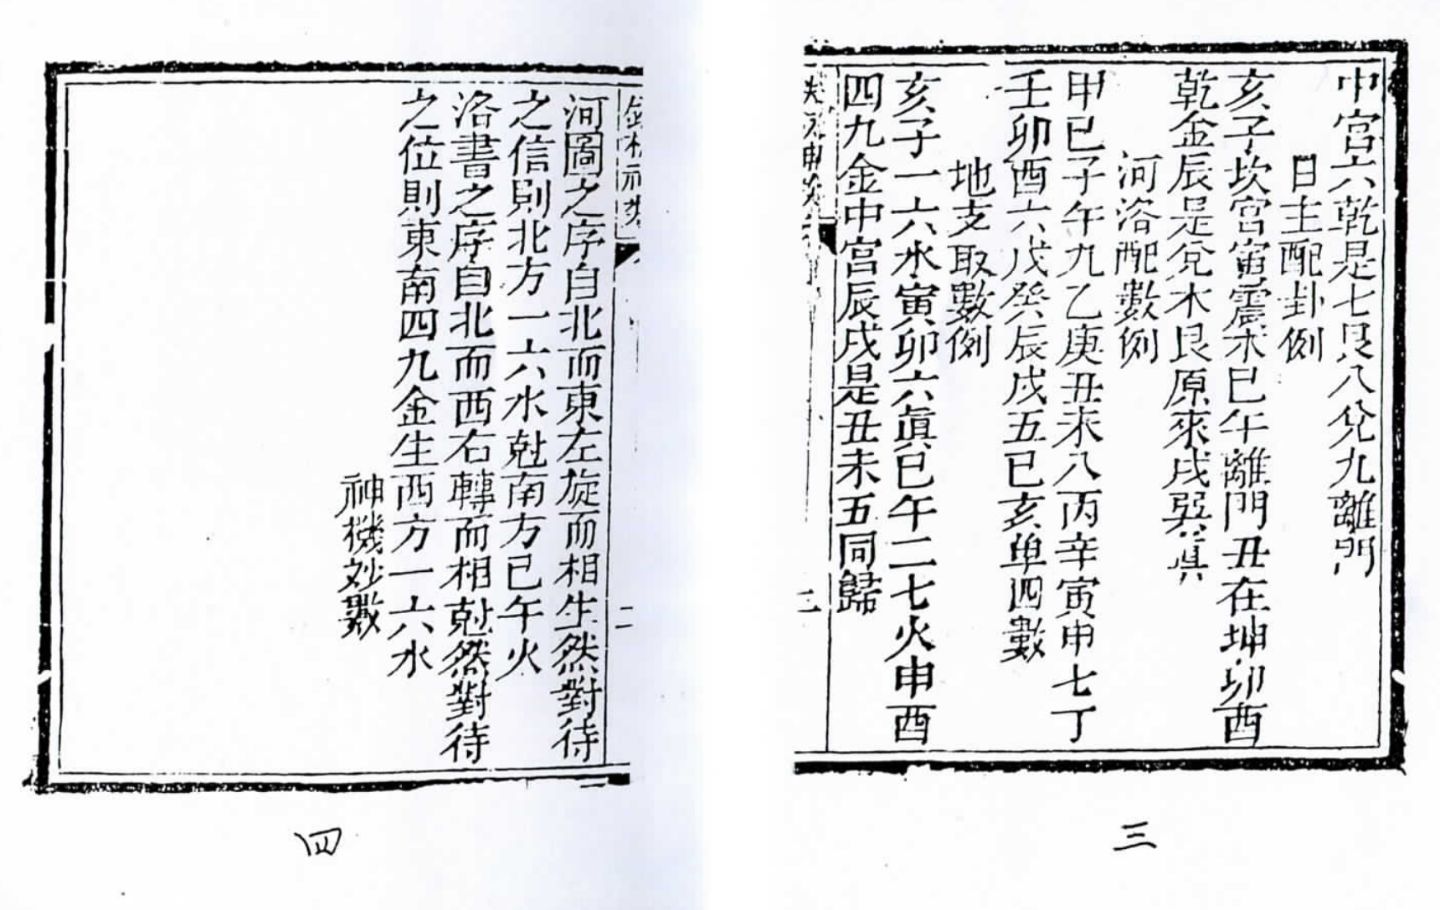 中宮六乾是七艮八兌九離門
日主配卦例
亥子坎宮寅震木巳午離門丑在坤卯酉
乾金辰是兌木艮原來戌巽真
河洛配數例
甲己子午九乙庚丑未八丙辛寅申七丁
壬卯酉六戊癸辰戌五巳亥单四數
地支取數例
亥子一六水寅卯六真巳午二七火申酉
四九金中宮辰戌是丑未五同歸
三
河圖之序自北而東左旋而相生然對待
之信則北方一六水尅南方巳午火
洛書之序自北而西右轉而相尅然對待
之位則東南四九金生西方一六水
神機妙數
二
三
四